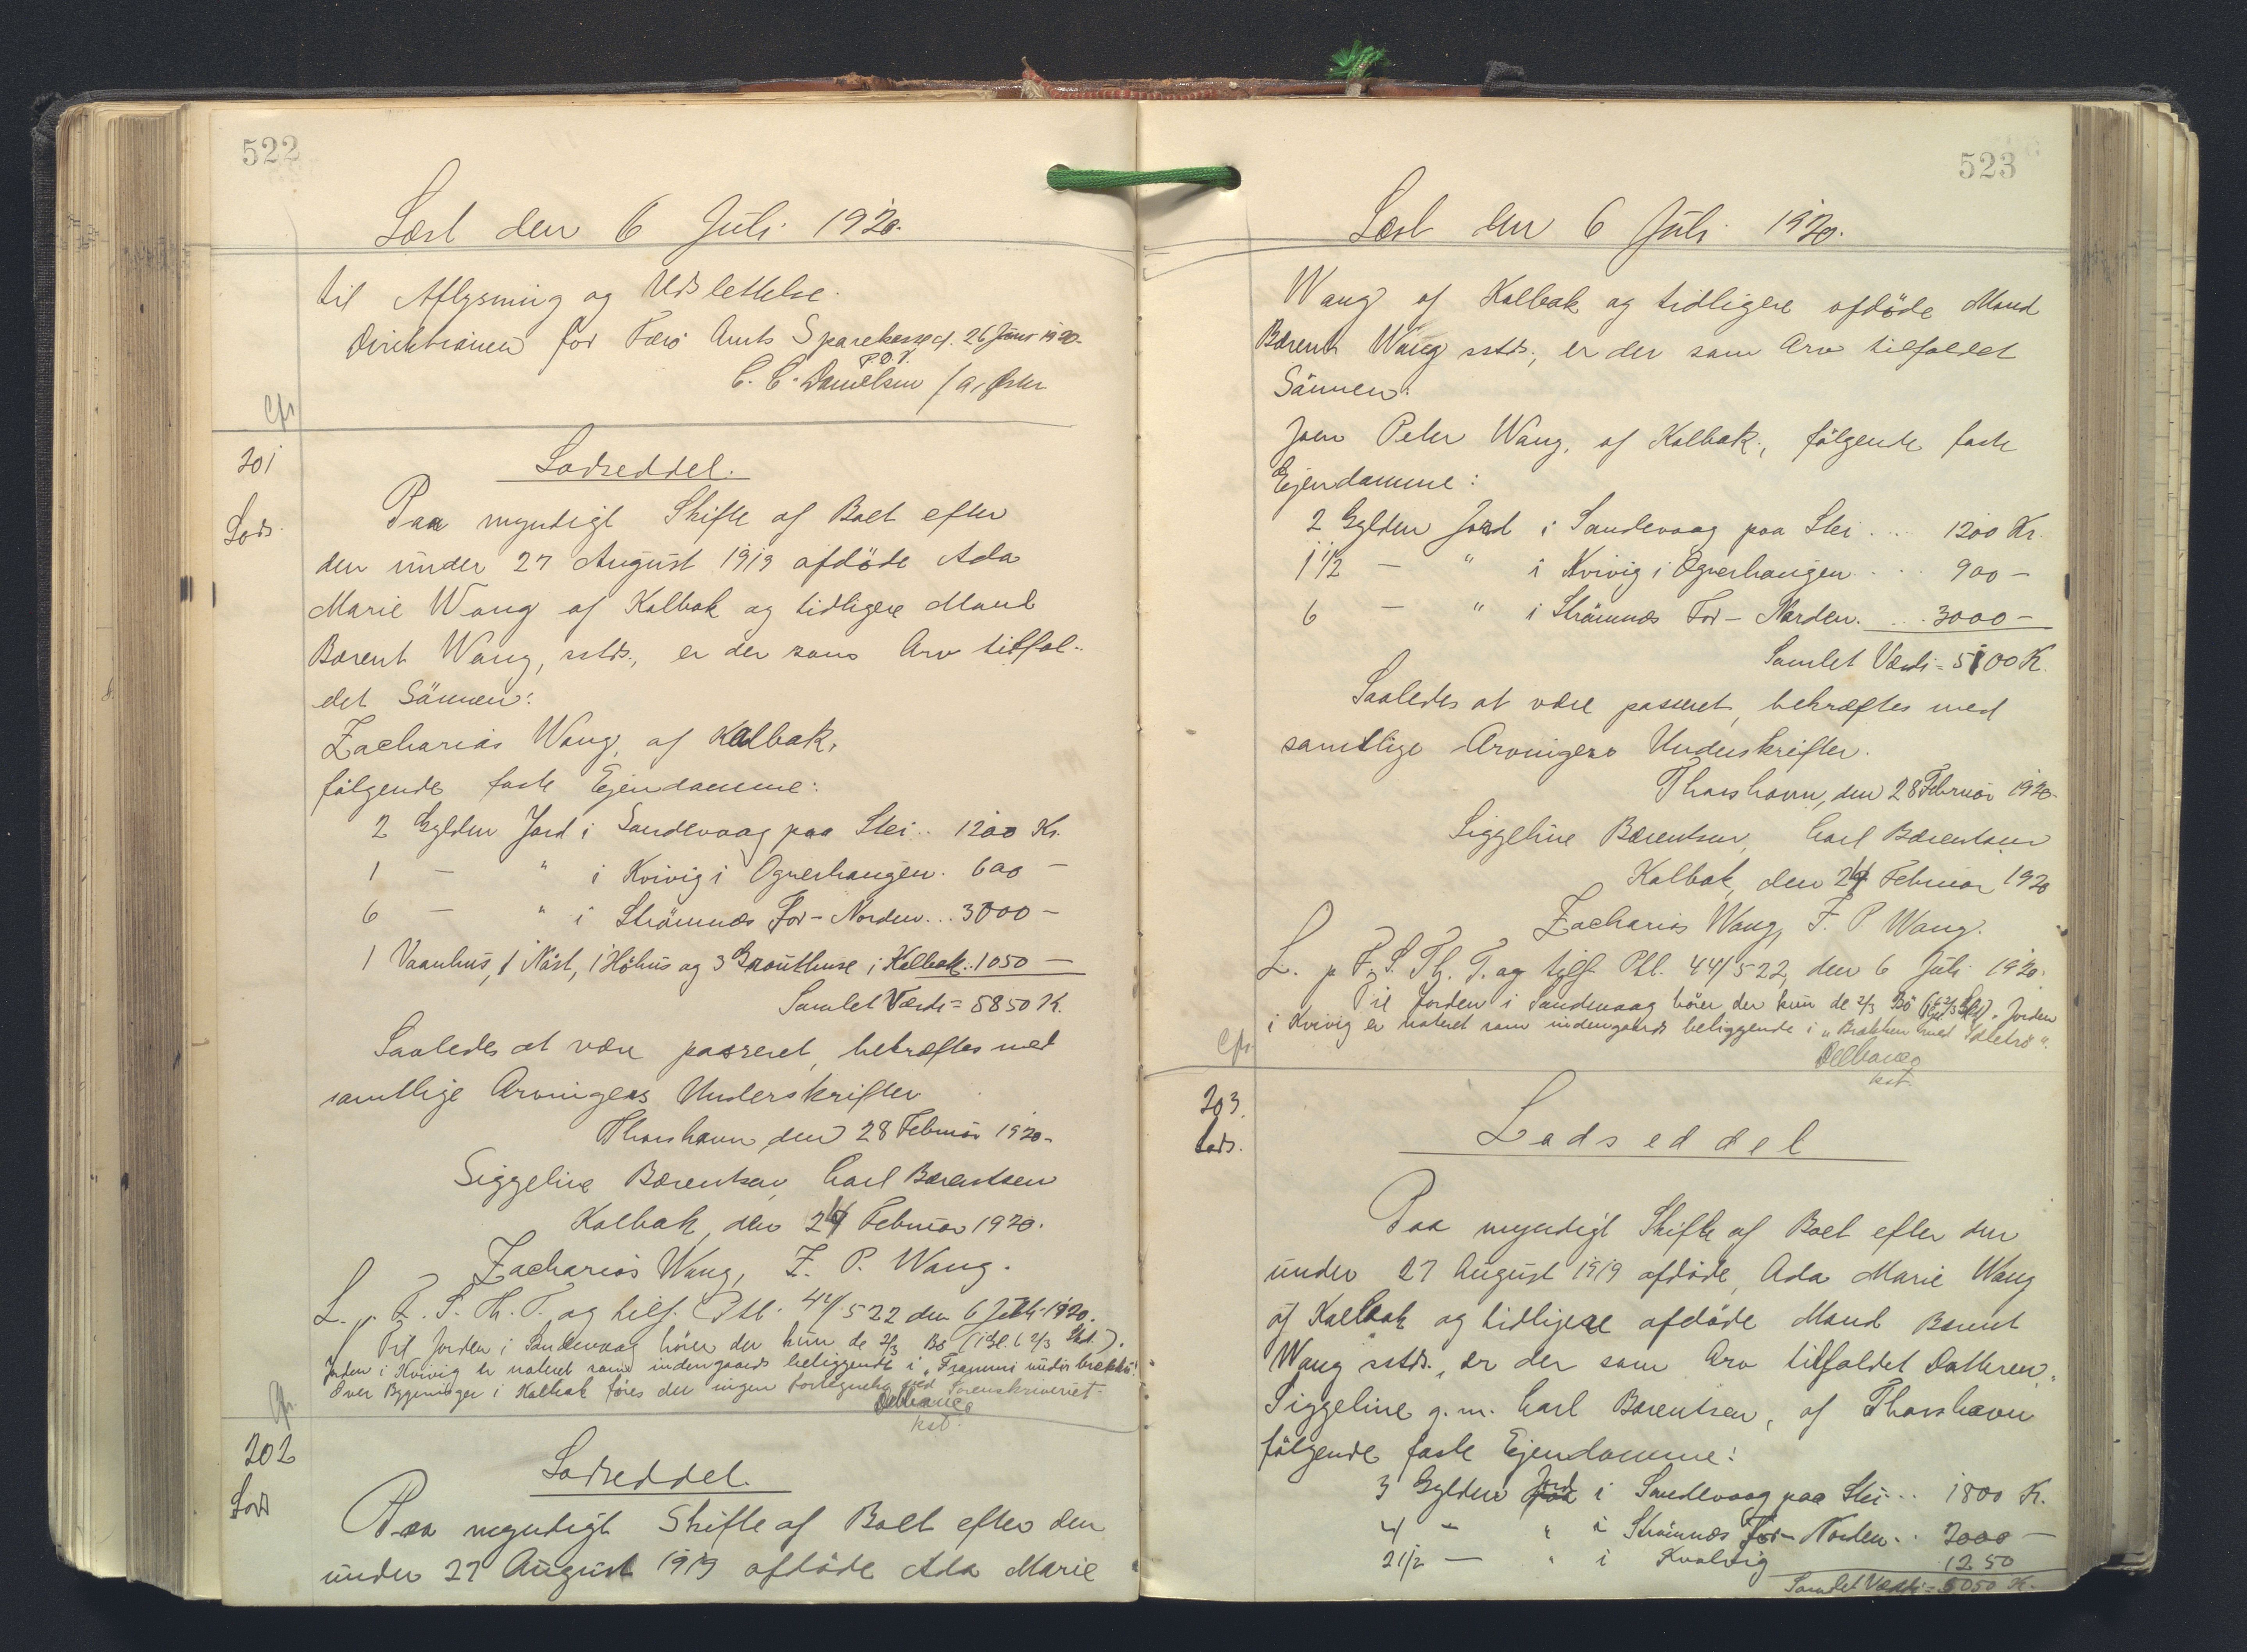 522
Læst den 6 Juli 1920.
til Aflysning og Udslettelse.
Direktionen for Færø Amts Sparekasse d. 26 Juni 1920.
P.O.V.
C. C. Danielsen /
cfr
201
Lods.
Lodseddel.
Paa myndigt Skifte af Boet efter
den under 27 August 1919 afdöde Ada
Marie Wang af Kalbak og tidligere Mand
Bærent Wang, sstds., er der som Arv tilfal-
det Sönnen:
Zacharias Wang, af Kalbak,
fölgende faste Ejendomme:
2 Gylden Jord i Sandevaag paa Slei .. 1200 Kr.
1 — " i Kvivig i Ognerhaugen. 600 —
6 — " i Strömnæs For-Norden... 3000 —
1 Vaanhus, 1 Nöst, 1 Höhus og 3 Grouthuse i Kalbak.. 1050 —
Samlet Værdi = 5850 K.
Saaledes at være passeret, bekræftes med
samtlige Arvingers Underskrifter
Thorshavn, den 28 Februar 1920.
Siggeline Bærentsen, Carl Bærentsen
Kalbak, den 24 Februar 1920.
Zacharias Wang, J. P. Wang.
L. p. F. S. Th. T. og tilf. Ptb. 44/522 den 6 Juli 1920.
Til Jorden i Sandevaag hörer der kun de 2/3 Bö (
Jorden i Kvivig er noteret som indengaards beliggende i "Frammi undir brekku".
Over Bygninger i Kalbak föres der ingen Fortegnelse ved Sorenskriveriet.
Delbanco
kst.
cfr.
202
Lods
Lodseddel.
Paa myndigt Skifte af Boet efter den
under 27 August 1919 afdöde Ada Marie
523
Læst den 6 Juli 1920.
Wang af Kalbak og tidligere afdöde Mand
Bærent Wang sstds., er der som Arv tilfaldet
Sönnen:
Joen Peter Wang, af Kalbak, fölgende faste
Ejendomme:
2 Gylden Jord i Sandevaag paa Slei .... 1200 Kr.
1 1/2 — " i Kvivig i Ognerhaugen .... 900 —
6 — " i Strömnæs For-Norden. ... 3000 —
Samlet Værdi = 5100 K.
Saaledes at være passeret, bekræftes med
samtlige Arvingers Underskrifter.
Thorshavn, den 28 Februar 1920.
Siggeline Bærentsen, Carl Bærentsen
Kalbak, den 24 Februar 1920
Zacharias Wang, J. P. Wang.
L. p. F. S. Th. T. og tilf. Ptb. 44/522, den 6 Juli 1920.
Til Jorden i Sandevaag hörer der kun de 2/3 Bö Jorden
i Kvivig er noteret som indengaards beliggende i "Brekken
Delbanco
kst.
cfr
203.
Lods.
Lodseddel
Paa myndigt Skifte af Boet efter den
under 27 August 1919 afdöde, Ada Marie Wang
af Kalbak og tidligere afdöde Mand Bærent
Wang sstds., er der som Arv tilfaldet Datteren,
Siggeline g. m. Carl Bærentsen, af Thorshavn
fölgende faste Ejendomme:
3 Gylden Jord i Sandevaag paa Slei ... 1800 K.
4 — " i Strömnæs For-Norden .. 2000 —
2 1/2 — " i Kvalvig 1250
Samlet Værdi = 5050 K.